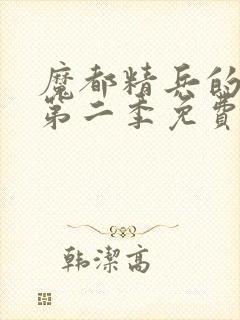 魔都精兵的
第二季免費
韩潔高